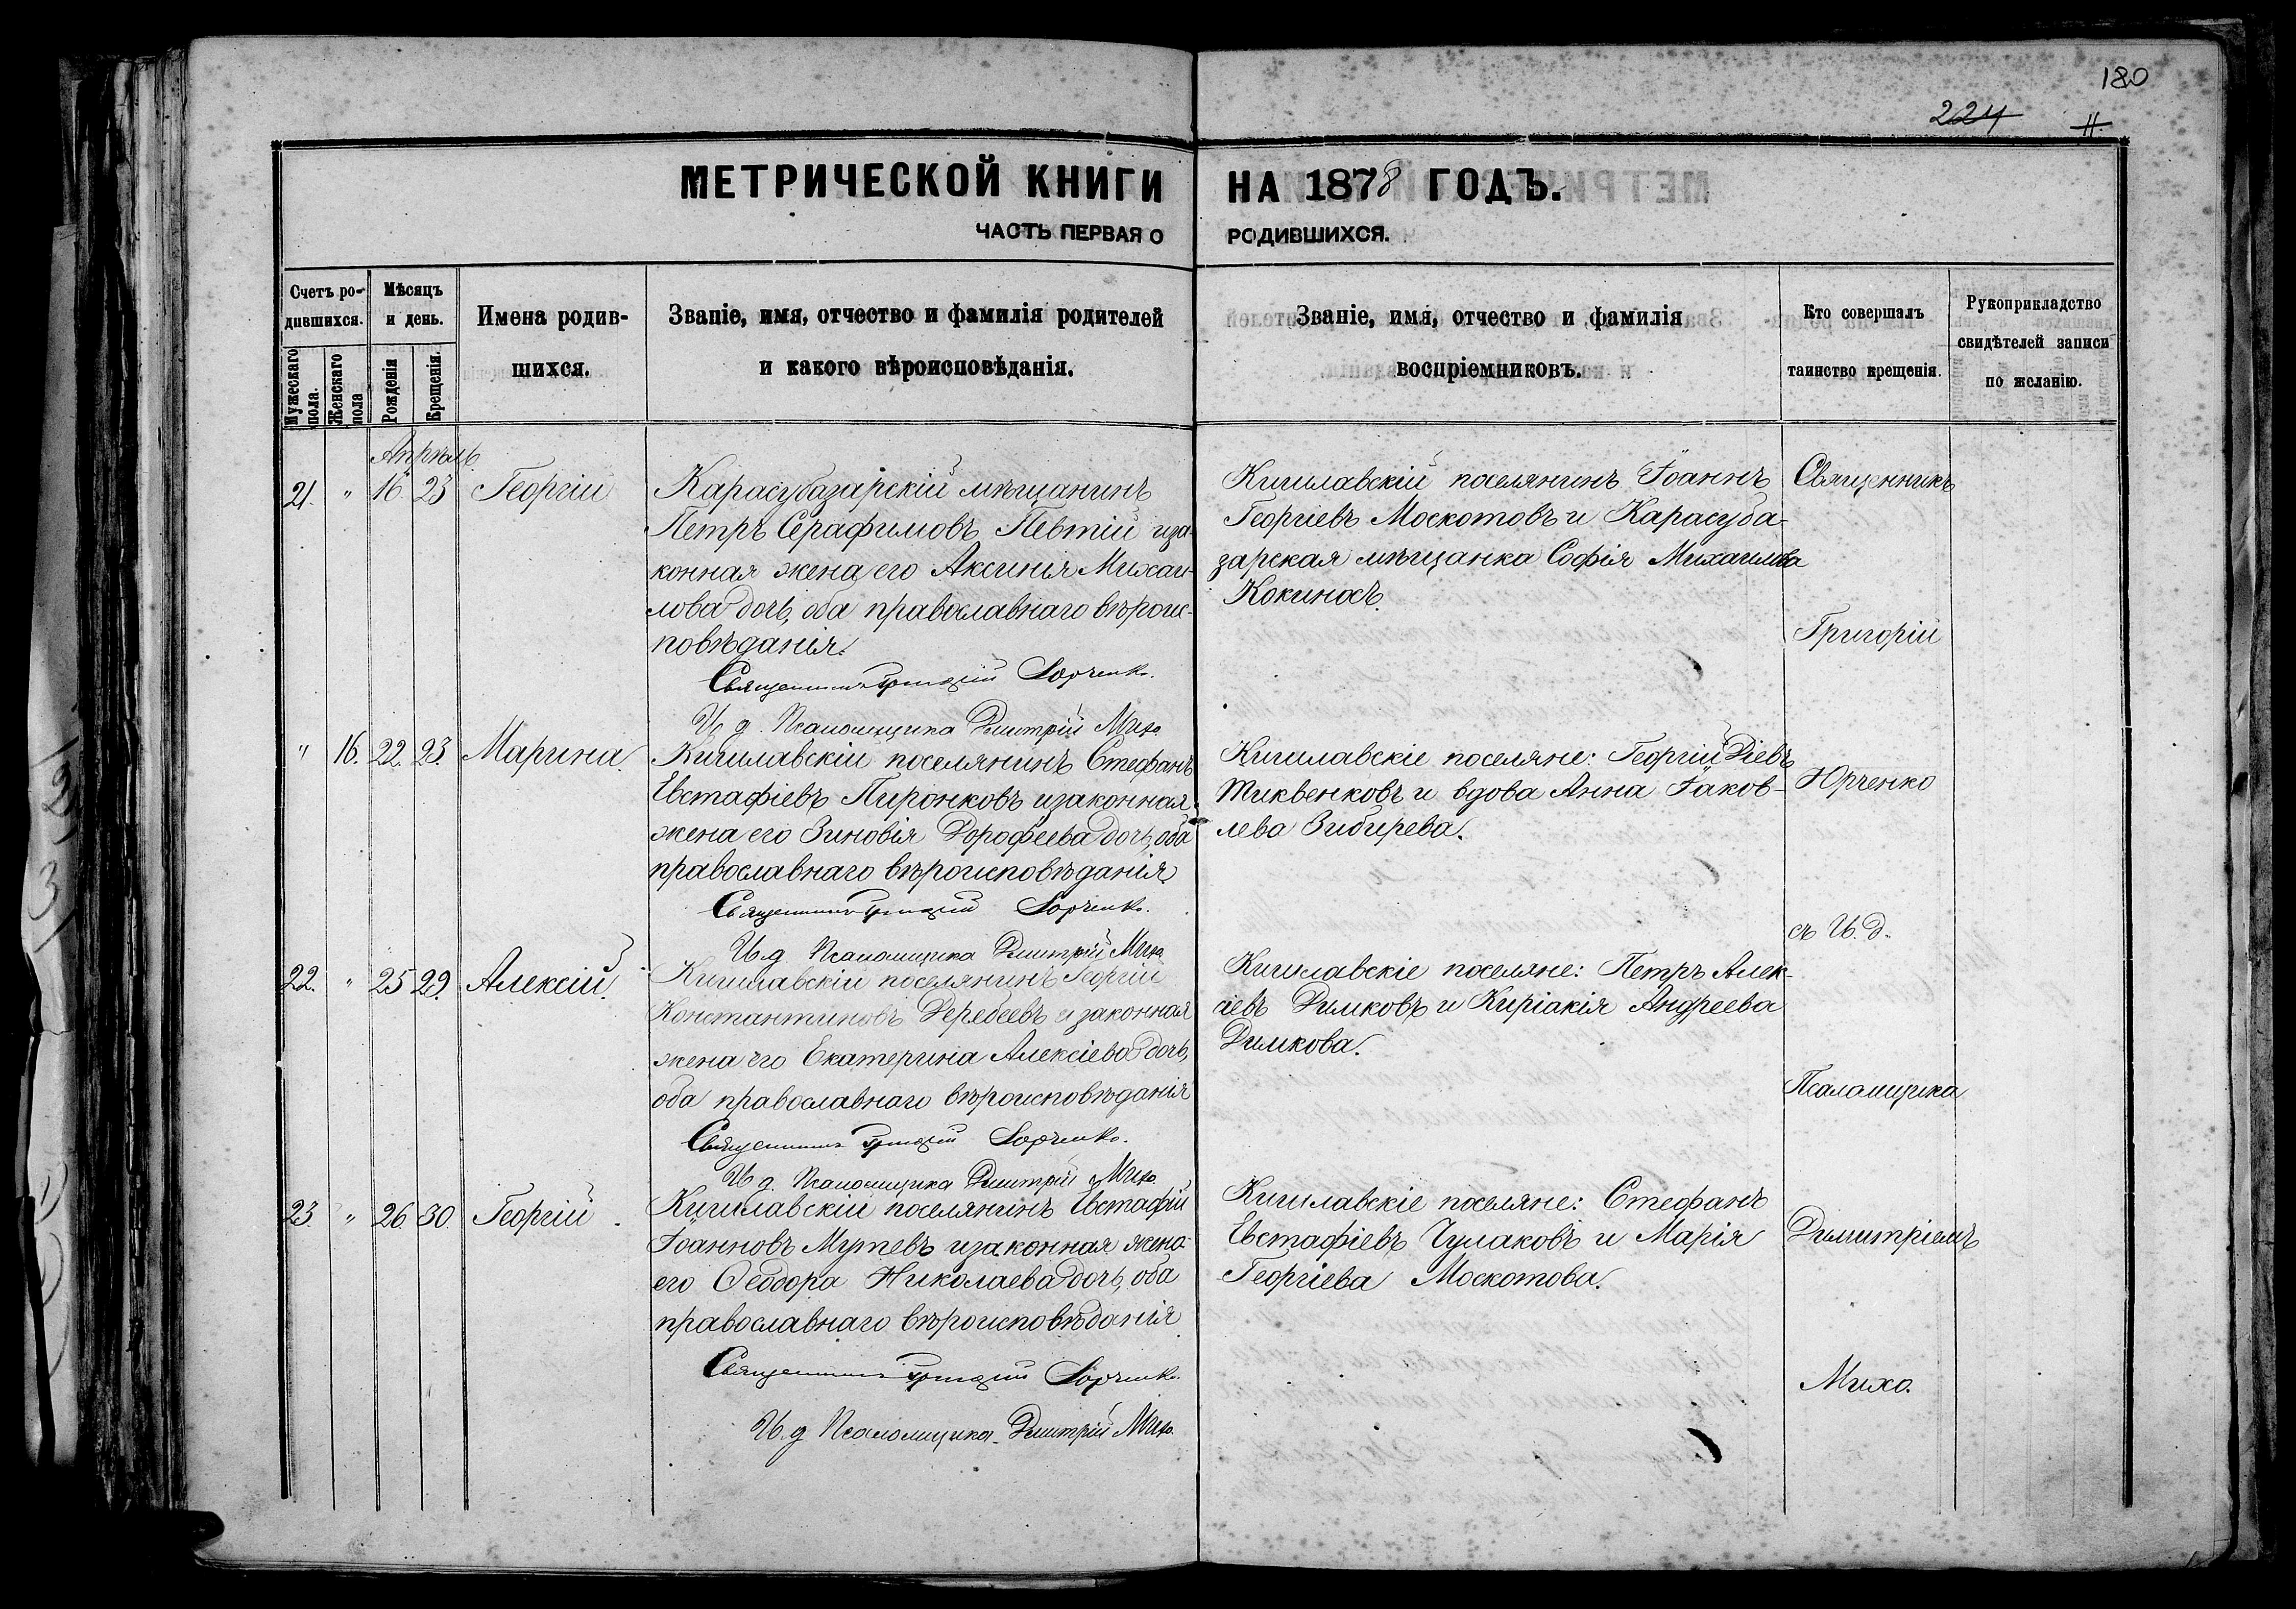 180
224
11.
МЕТРИЧЕСКОЙ КНИГИ НА 1878 ГОДЪ.
ЧАСТЬ ПЕРВАЯ О РОДИВШИХСЯ.
Счетъ ро-
дившихся.
Мужескаго пола.
Женскаго пола
Мѣсяцъ
и день.
Рожденія
Крещенія.
Имена родив-
шихся.
Званіе, имя, отчество и фамилія родителей
и какого вѣроисповѣданія.
Званіе, имя, отчество и фамилія
воспріемниковъ.
Кто совершалъ
таинство крещенія.
Рукоприкладство
свидѣтелей записи
по желанію.
Апрѣль
21. " 16. 23 Георгій
Карасубазарскій мѣщанинъ
Петръ Серафимовъ Певтій и за-
конная жена его Аксинія Михаи-
лова дочь, оба православнаго вѣроис-
повѣданія.
Священникъ Григорій Юрченко.
И. д. Псаломщика Димитрій Михо
Кишлавскій поселянинъ Іоаннъ
Георгіевъ Москотовъ и Карасуба-
зарская мѣщанка Софія Михаилова
Кокиносъ.
" 16. 22. 23. Марина.
Кишлавскій поселянинъ Стефанъ
Евстафіевъ Пиронковъ и законная
жена его Зиновія Дорофеева дочь, оба
православнаго вѣроисповѣданія.
Священникъ Григорій Юрченко.
И. д. Псаломщика Димитрій Михо
Кишлавскіе поселяне: Георгій Діевъ
Тиквенковъ и вдова Анна Іаков-
лева Зибирева.
22. " 25 29. Алексій.
Кишлавскій поселянинъ Георгій
Константиновъ Деребеевъ и законная
жена его Екатерина Алексіева дочь,
оба православнаго вѣроисповѣданія
Священникъ Григорій Юрченко.
И. д. Псаломщика Димитрій Михо.
Кишлавскіе поселяне: Петръ Алек-
сіевъ Димковъ и Киріакія Андреева
Димкова.
23. " 26 30 Георгій.
Кишлавскій поселянинъ Евстафій
Іоанновъ Мутевъ и законная жена
его Феодора Николаева дочь, оба
православнаго вѣроисповѣданія
Священникъ Григорій Юрченко.
И. д Псаломщика Димитрій Михо.
Кишлавскіе поселяне: Стефанъ
Евстафіевъ Чулаковъ и Марія
Георгіева Москотова.
Священникъ
Григорій
Юрченко
съ И. д.
Псаломщика
Димитріемъ
Михо.